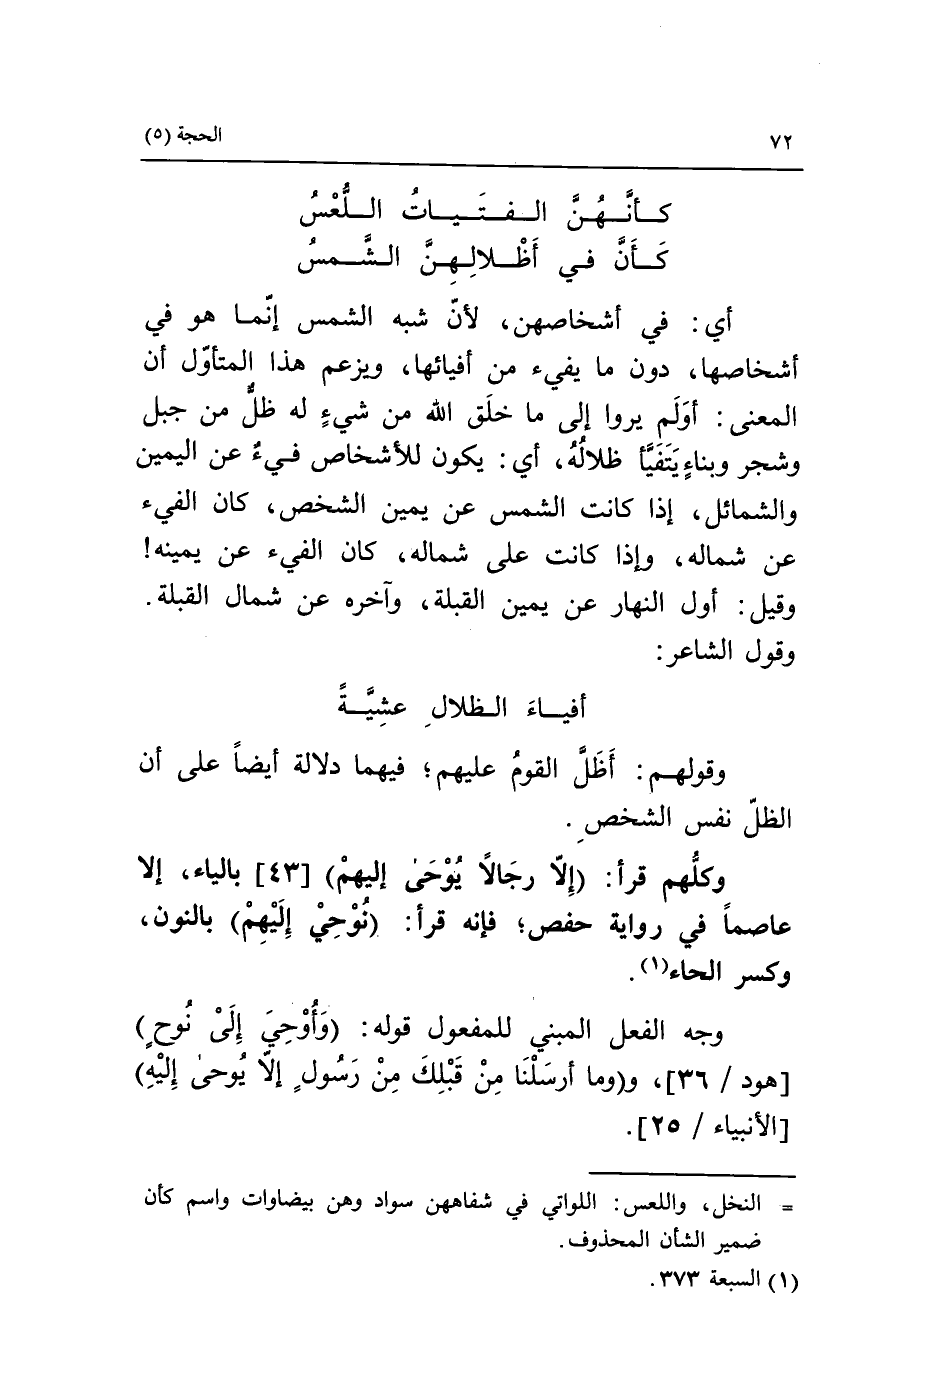 ٧٢
الحجة (٥)
كـأنَّـهُـنَّ الـفـتَـيـاتُ اللُّعْسُ
كَـأَنَّ فـي أَظْـلالِـهـنَّ الشَّـمسُ
أي: في أشخاصهن، لأنّ شبه الشمس إنّمـا هو في
أشخاصها، دون ما يفيء من أفيائها، ويزعم هذا المتأوّل أن
المعنى: أوَلَم يروا إلى ما خلَق الله من شيءٍ له ظلٌّ من جبل
وشجر وبناءٍ يَتَفَيَّأ ظلالُهُ، أي: يكون للأشخاص فيءٌ عن اليمين
والشمائل، إذا كانت الشمس عن يمين الشخص، كان الفيء
عن شماله، وإذا كانت على شماله، كان الفيء عن يمينه!
وقيل: أول النهار عن يمين القبلة، وآخره عن شمال القبلة.
وقول الشاعر:
أفيـاءَ الـظلالِ عشِيَّـةً
وقولهـم: أَظَلَّ القومُ عليهم؛ فيهما دلالة أيضاً على أن
الظلّ نفس الشخصِ.
وكلُّهم قرأ: (إِلّا رجَالًا يُوْحَىٰ إليهمْ) [٤٣] بالياء، إلا
عاصماً في رواية حفص؛ فإنه قرأ: (نُوْحِيْ إِلَيْهِمْ) بالنون،
وكسر الحاء(١).
وجه الفعل المبني للمفعول قوله: (وَأُوْحِيَ إِلَىْ نُوحٍ)
[هود / ٣٦]، و(وما أرسَلْنَا مِنْ قَبْلِكَ مِنْ رَسُولٍ إلّا يُوحىٰ إِلَيْهِ)
[الأنبياء / ٢٥].
= النخل، واللعس: اللواتي في شفاههن سواد وهن بيضاوات واسم كأن
ضمير الشأن المحذوف.
(١) السبعة ٣٧٣.